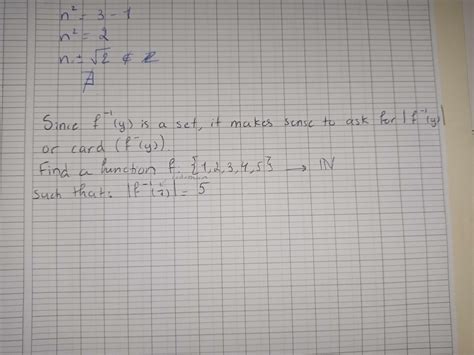 n² = 3 - 1
n² = 2
n = ± √2 ∉ ℤ
∄
Since f⁻¹(y) is a set, it makes sense to ask for |f⁻¹(y)|
or card (f⁻¹(y)).
Find a function f: {1,2,3,4,5} → ℕ
such that: |f⁻¹(2)| = 5